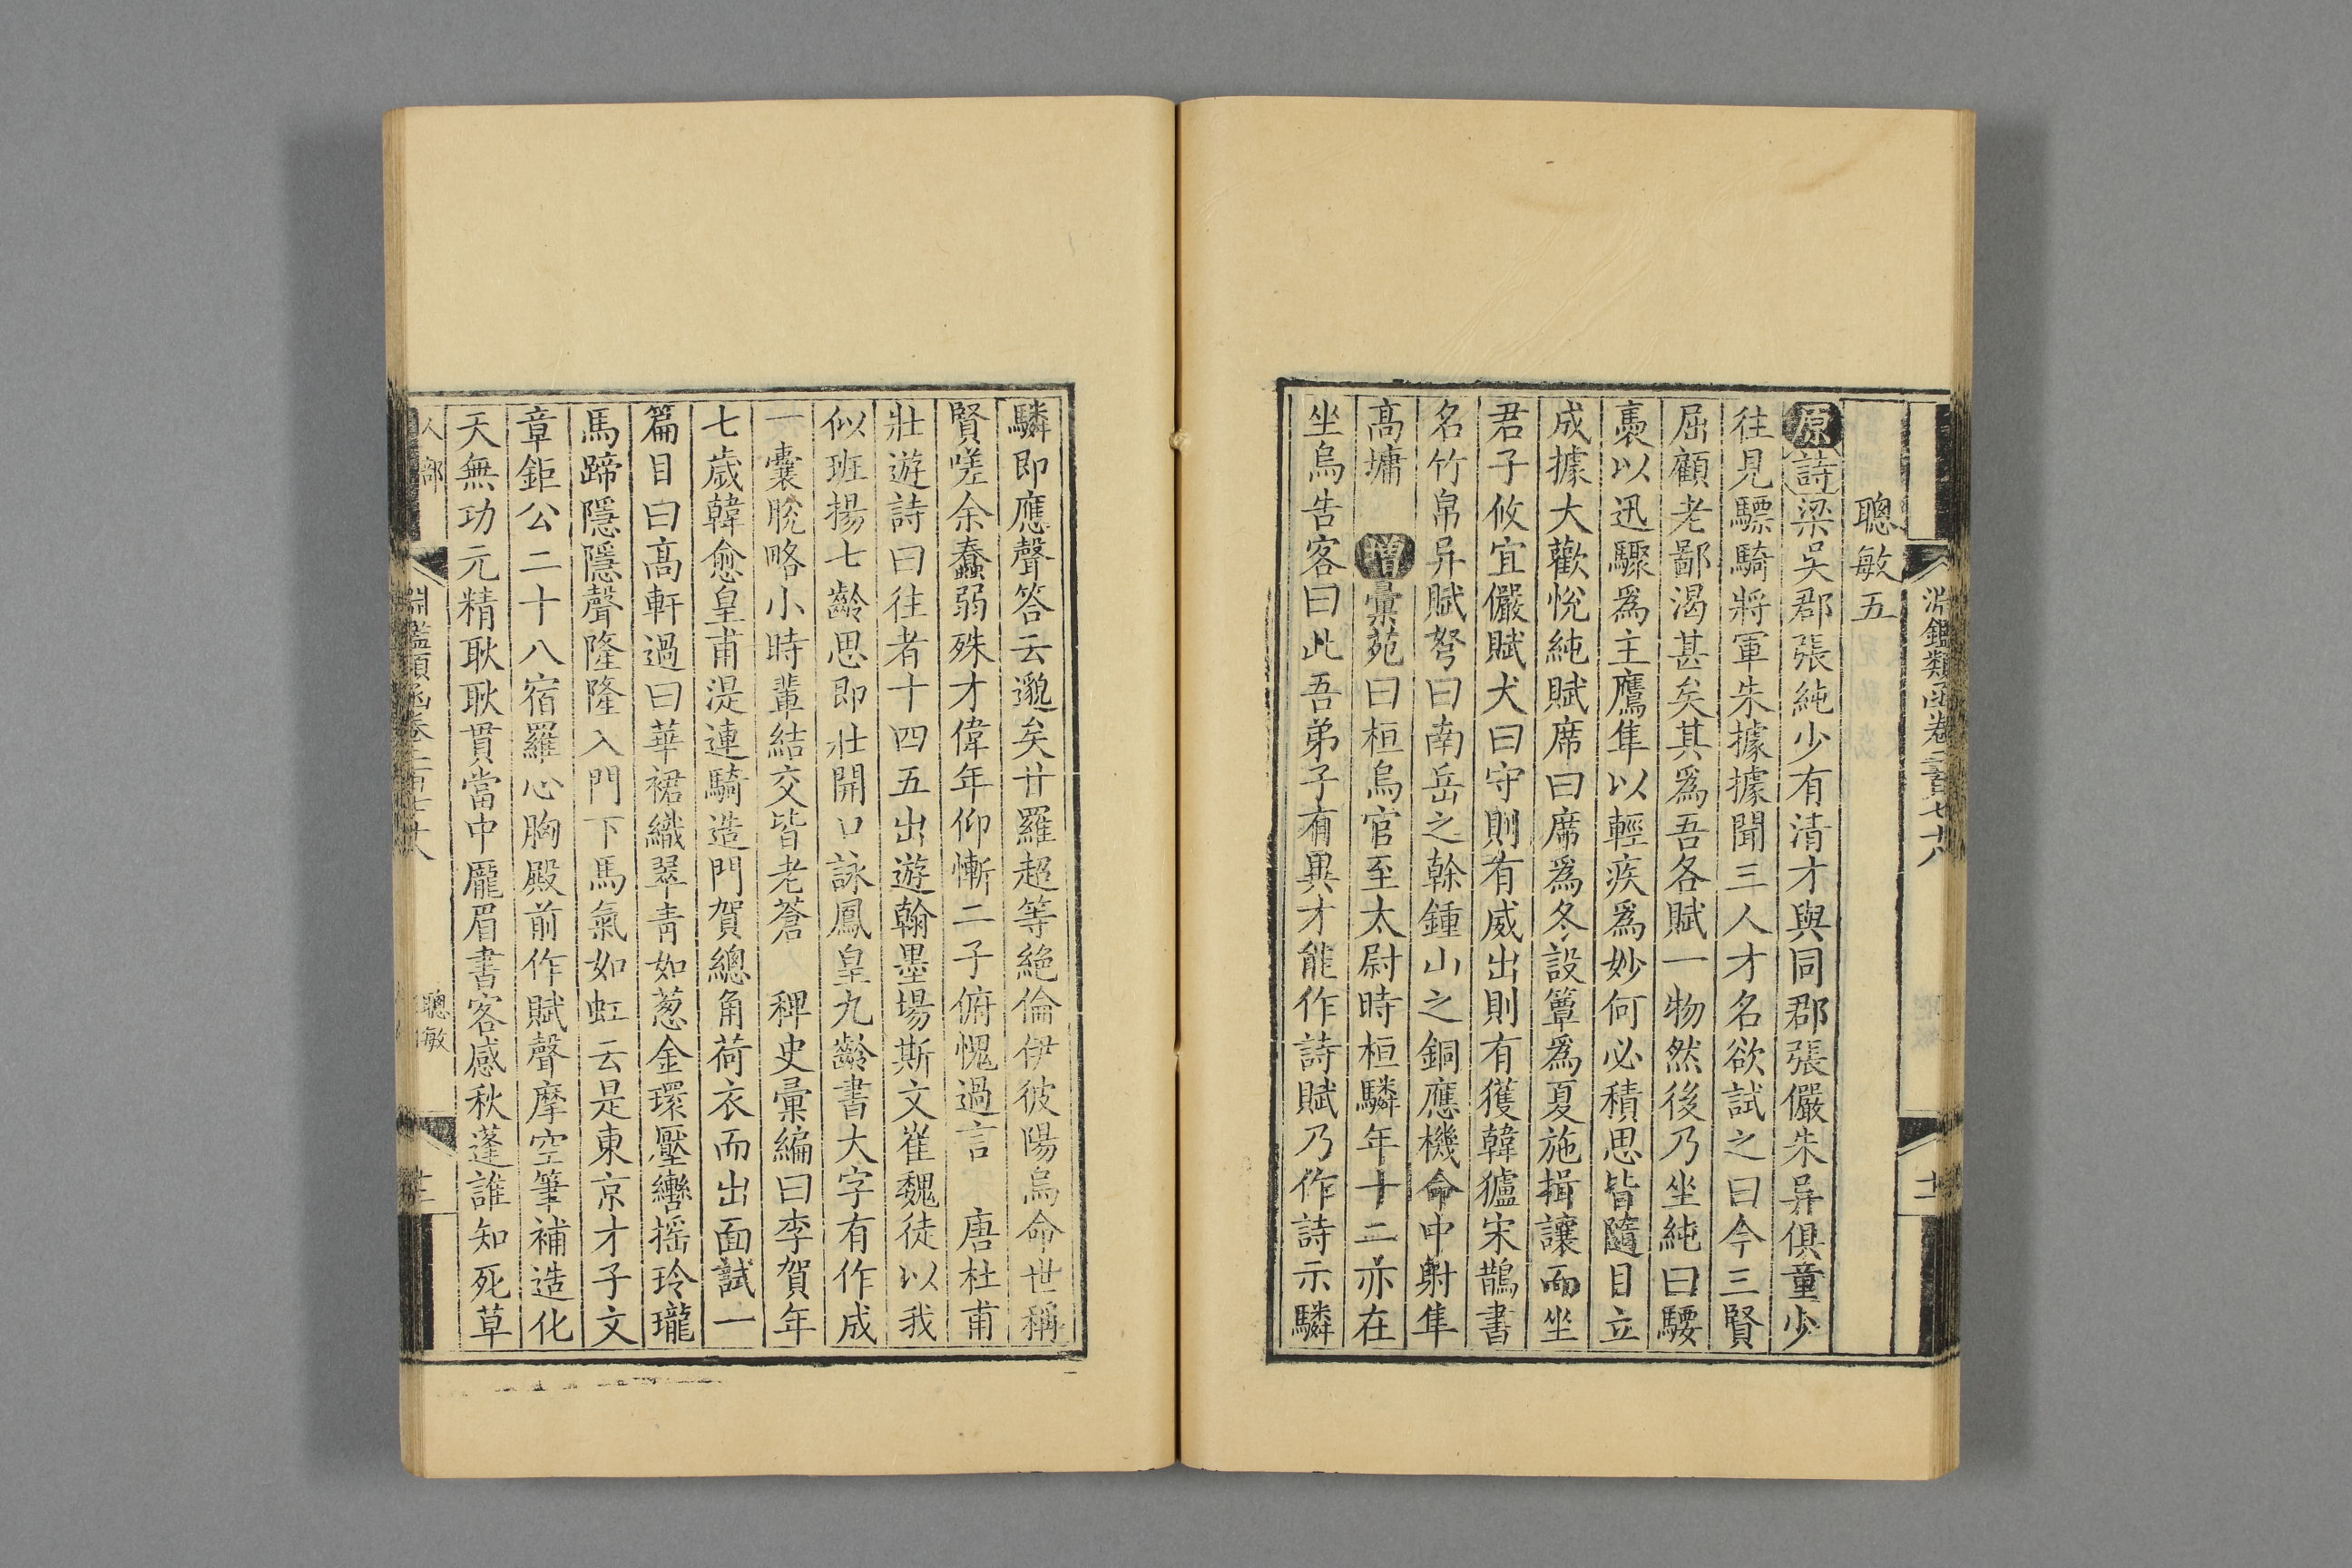 淵鑑類函卷二百七十八
聰敏五
原詩梁吳郡張純少有清才與同郡張儼朱异俱童少
往見驃騎將軍朱據據聞三人才名欲試之曰今三賢
屈顧老鄙渴甚矣其爲吾各賦一物然後乃坐純曰騕
褭以迅驟爲主鷹隼以輕疾爲妙何必積思皆隨目立
成據大歡悅純賦席曰席爲冬設簟爲夏施揖讓而坐
君子攸宜儼賦犬曰守則有威出則有獲韓獹宋鵲書
名竹帛异賦弩曰南岳之幹鍾山之銅應機命中射隼
高墉 增彙苑曰桓烏官至太尉時桓驎年十二亦在
坐烏告客曰此吾弟子有異才能作詩賦乃作詩示驎
驎即應聲答云邈矣甘羅超等絶倫伊彼陽烏命世稱
賢嗟余蠢弱殊才偉年仰慚二子俯愧過言 唐杜甫
壯遊詩曰往者十四五出遊翰墨場斯文崔魏徒以我
似班揚七齡思即壯開口詠鳳皇九齡書大字有作成
一囊脫略小時輩結交皆老蒼 稗史彙編曰李賀年
七歲韓愈皇甫湜連騎造門賀總角荷衣而出面試一
篇目曰高軒過曰華裾織翠青如葱金環壓轡搖玲瓏
馬蹄隱隱聲隆隆入門下馬氣如虹云是東京才子文
章鉅公二十八宿羅心胸殿前作賦聲摩空筆補造化
天無功元精耿耿貫當中龐眉書客感秋蓬誰知死草
人部 淵鑑類函卷二百七十八 聰敏